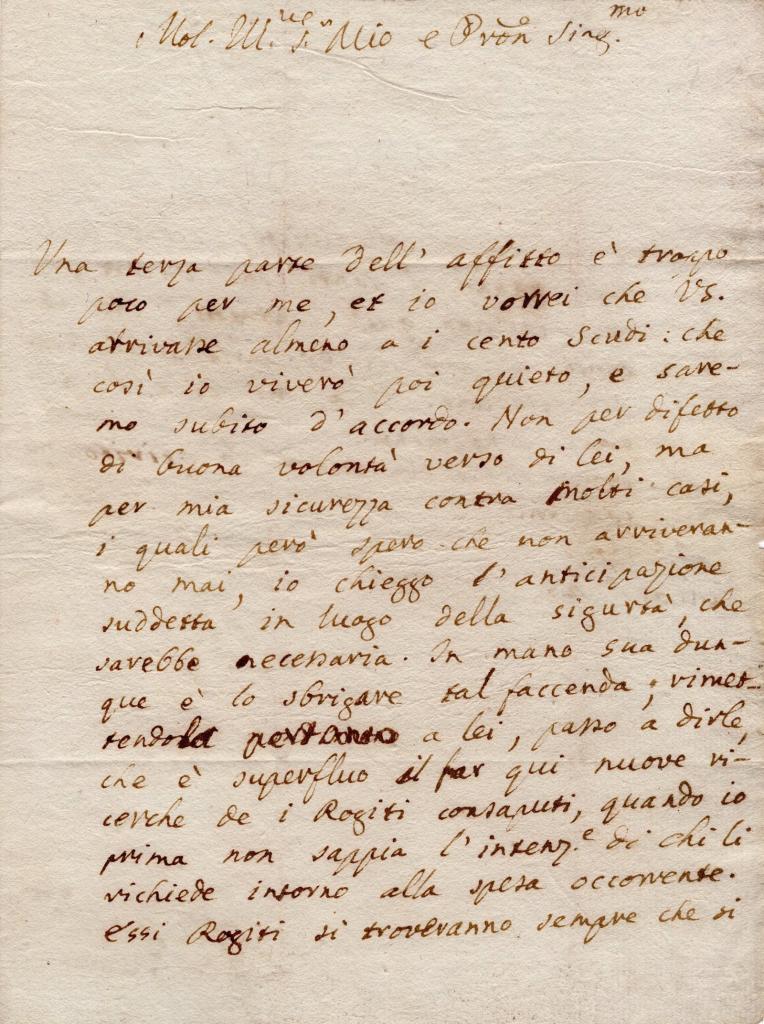 Mol. Ill.re s.r Mio e Pron Sing.mo
Una terza parte dell' affitto è troppo
poco per me, et io vorrei che VS.
arrivasse almeno a i cento Scudi: che
così io viverò poi quieto, e sare-
mo subito d'accordo. Non per difetto
di buona volontà verso di lei, ma
per mia sicurezza contra molti casi,
i quali però spero che non arriveran-
no mai, io chieggo l'anticipazione
suddetta in luogo della sigurtà, che
sarebbe necessaria. In mano sua dun-
que è lo sbrigare tal faccenda; rimet-
tendola pertanto a lei, passo a dirle,
che è superfluo il far qui nuove ri-
cerche de i Rogiti consaputi, quando io
prima non sappia l'intenz.e di chi li
richiede intorno alla spesa occorrente.
Essi Rogiti si troveranno sempre che si